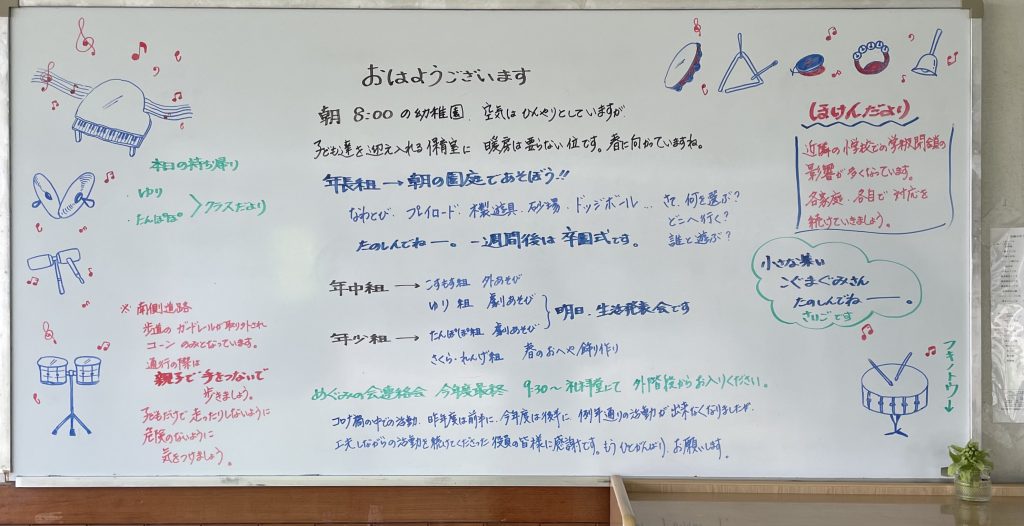 おはようございます
朝 8:00 の幼稚園、空気は ひんやりとしていますが
子ども達を迎え入れる保育室に 暖房は要らない位です。春に向かっていますね。
年長組 → 朝の園庭であそぼう!!
なわとび・プレイロード・木製遊具・砂場・ドッジボール… さて、何を選ぶ?
どこへ行く?
誰と遊ぶ?
たのしんでねー。一週間後は 卒園式です。
年中組 → こすもす組 外あそび
ゆり 組 劇あそび
明日、生活発表会です
年少組 → たんぽぽ組 劇あそび
さくら・れんげ組 春のおへや飾り作り
めぐみの会連絡会 今年度最終 9:30〜礼拝堂にて 外階段からお入りください。
コロナ禍の中での活動、昨年度は前半に、今年度は後半に、例年通りの活動が出来なくなりましたが
工夫しながらの活動を続けてくださった役員の皆様に感謝です。もうひとがんばり、お願いします。
本日の持ち帰り
・ゆり
・たんぽぽ
クラスだより
※ 南側道路
歩道の ガードレールが取り外され
コーン のみとなっています。
通行の際は
親子で手をつないで
歩きましょう。
子どもだけで走ったりしないように
危険のないように
気をつけましょう。
ほけんだより
近隣の小学校での学級閉鎖の
影響が多くなっています。
各家庭、各自で対応を
続けていきましょう。
小さな集い
こぐまぐみさん
たのしんでねー。
さいごです
フキノトウ→